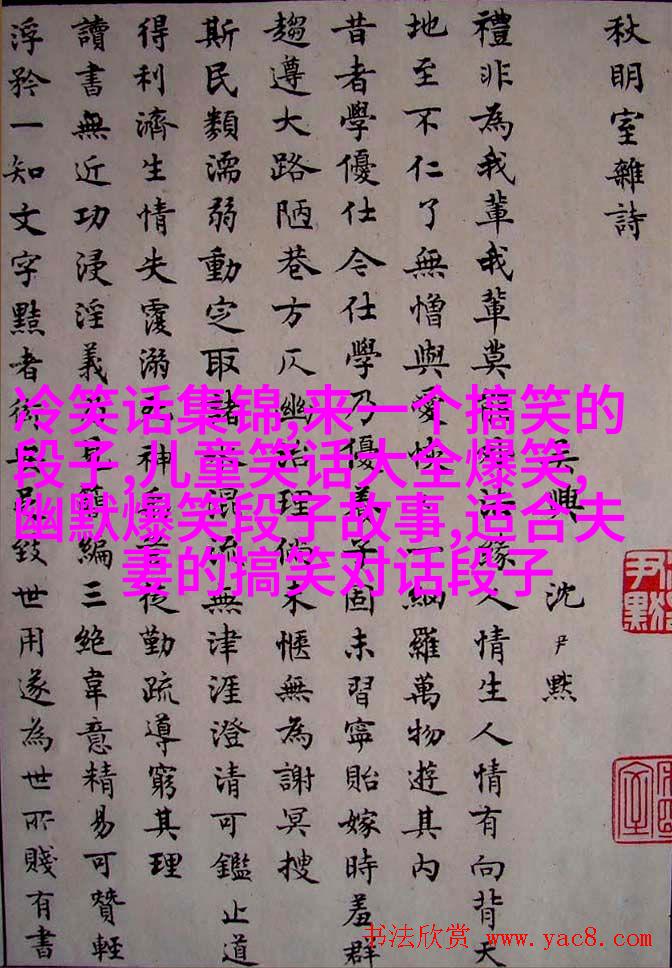 秋明室雜詩
吳興 沈尹默
禮非為我輩我輩莫法緣人情生人情有向背天
地至不仁了無憎與愛一網羅萬物遊其內
昔者學優仕今仕學乃優子固未習寧貽嫁時羞群
趨遵大路陋巷方仄幽治理倘不愜無為謝冥搜
斯民類濡弱動定取諸混流無津涯澄清可鑑止道
得利濟生情失覆溺神從勤疏導窮其理
讀書無近功浸淫義編三絕韋意精易可贊輕
浮矜一知文字黠者致世用遂為世所賤有書
冷笑话集锦,来一个搞笑的
段子,儿童笑话大全爆笑,
幽默爆笑段子故事,适合夫
妻的搞笑对话段子
尹默
书法欣赏 www.yac8.com